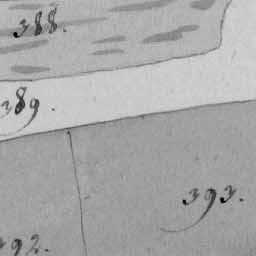 388.
389.
393.
392.